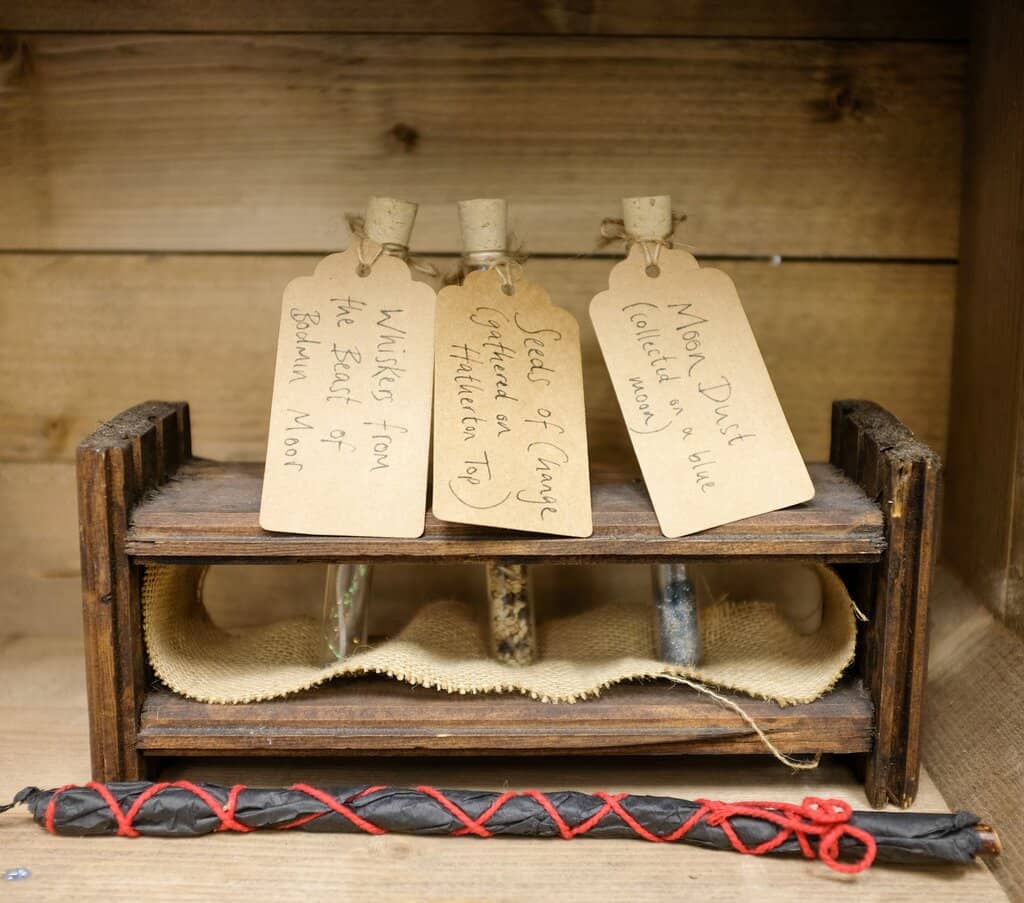 Whiskers from
the Beast of
Bodmin Moor
Seeds of Change
(gathered on
Hatherton Top)
Moon Dust
(collected on a blue
moon)